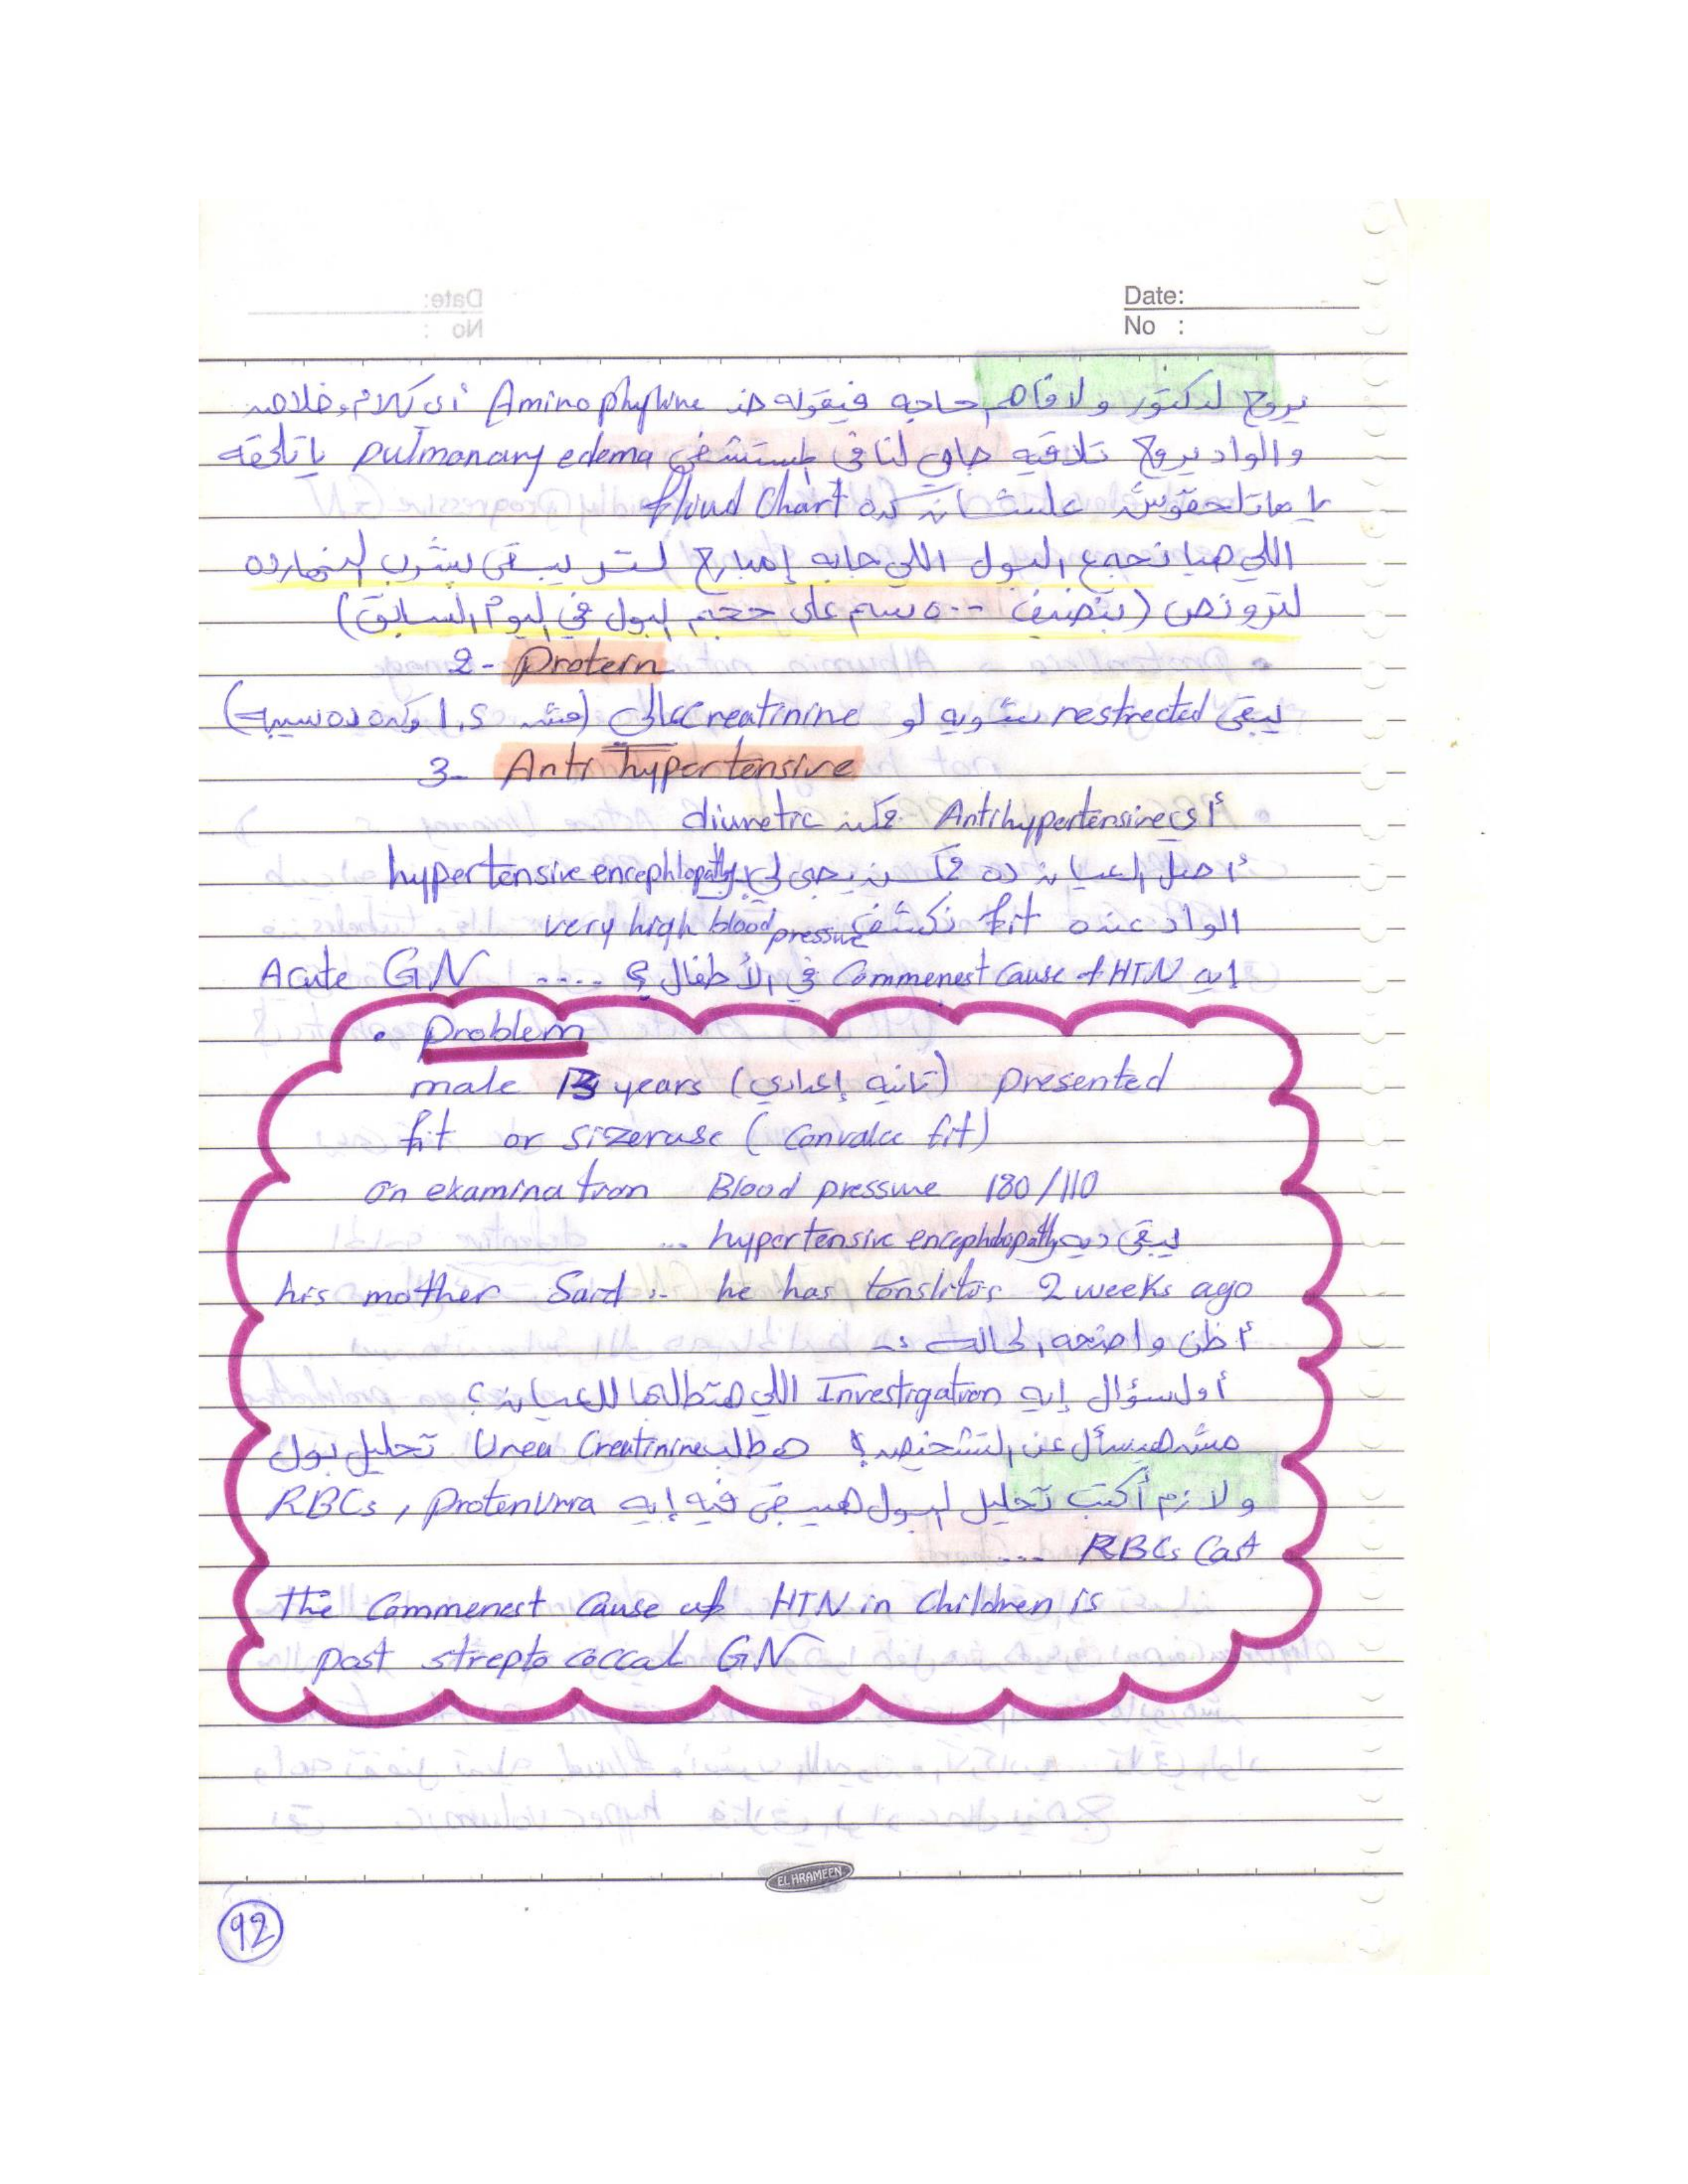 Date:
No :
يروح لدكتور ولا فاهم حاجه فيقوله خد Aminophylline أى كلام وخلاص
والواد يروح تلاقيه جاى لنا فى المستشفى pulmonary edema يا تلحقه
يا ماتلحقوش علشان كده fluid Chart
اللى هيا نجمع البول اللى جابه إمبارح لتر يبقى يشرب النهارده
لتر ونص (بنضيف ٥٠٠ سم على حجم البول فى اليوم السابق)
2- Protein
يبقى restrected شويه لو Creatinine عالى (مش 1.5 وكده سيبه)
3- Anti hypertensive
أى Antihypertensive ممكن diuretic
أصل العيان ده ممكن يجى لى بـ hypertensive encephlopathy
الواد عنده fit نكشف very high blood pressure
ايه Commenest Cause of HTN فى الأطفال؟ .... Acute GN
• Problem
male 13 years (تانيه إعدادى) presented
fit or sizeruse (Convalce fit)
on examination Blood pressure 180/110
يبقى ديه hypertensive encephlopathy ...
his mother Said :- he has tonslitis 2 weeks ago
أظن واضحه الحاله :-
أول سؤال إيه Investigation اللى هتطلبها للعيان؟
مش هيسأل عن التشخيص؟ هطلب Urea Creatinine تحليل بول
ولازم أكتب تحليل البول هيبقى فيه إيه RBCs , protenuria
RBCs Cast ...
The Commenest Cause of HTN in Children is
post strepto coccal GN
EL HRAMEEN
92